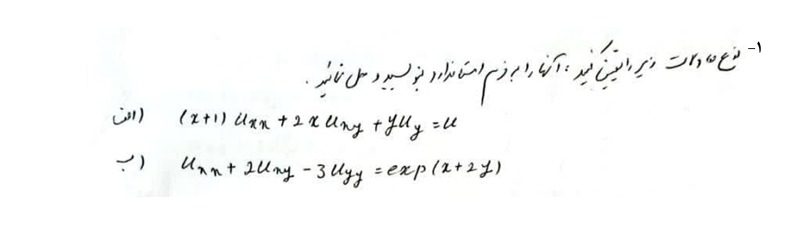 ۱- نوع معادلات زیر را تعیین کنید، آنها را به فرم استاندارد بنویسید و حل نمائید.
الف) (x+1) Uxx + 2x Uxy + y Uy = u
ب) Uxx + 2Uxy - 3Uyy = exp(x+2y)